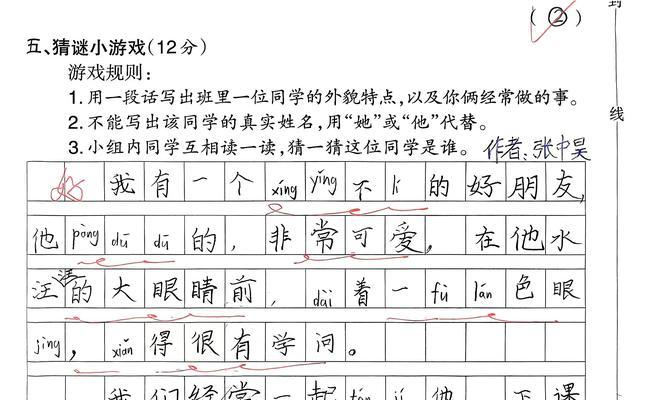 封
(②)
五、猜谜小游戏(12分)
游戏规则:
1.用一段话写出班里一位同学的外貌特点,以及你俩经常做的事。
线
2.不能写出该同学的真实姓名,用“她”或“他”代替。
3.小组内同学互相读一读,猜一猜这位同学是谁。 作者:张中昊
好 我有一个xíng yǐng不lí的好朋友,
他pàng dū dū的,非常可爱,在他水
汪汪的大眼睛前,dài着一fù lán色眼
jìng,xiǎn得很有学问。
我们经常一起 他 下课